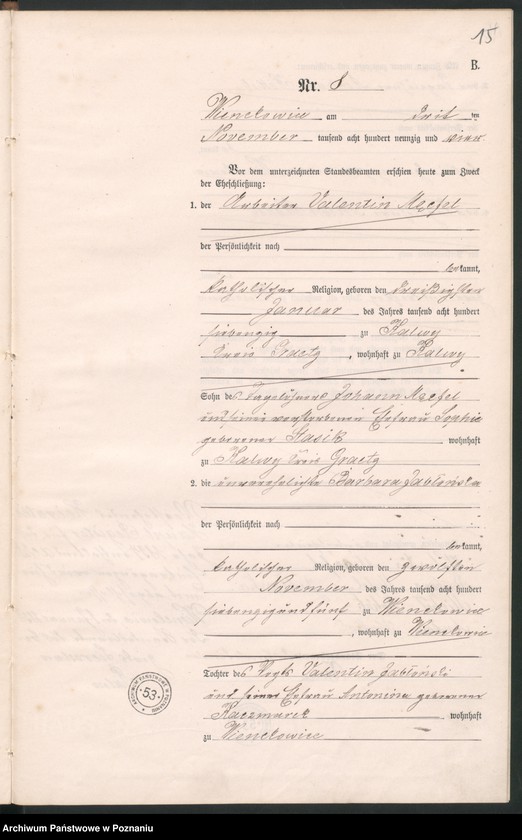 15
B.
Nr. 8
Wienckowice am Drit ten
November tausend acht hundert neunzig und vier
Vor dem unterzeichneten Standesbeamten erschien heute zum Zweck
der Eheschließung:
1. der Arbeiter Valentin
der Persönlichkeit nach
bekannt,
katholischer Religion, geboren den dreißigsten
Januar des Jahres tausend acht hundert
siebenzig zu Kalwy
Kreis Graetz, wohnhaft zu Kalwy
Sohn des Tagelöhners Johann
und seiner verstorbenen Ehefrau Sophie
geborener Stasik wohnhaft
zu Kalwy Kreis Graetz
2. die unverehelichte Barbara Jabłońska
der Persönlichkeit nach
bekannt,
katholischer Religion, geboren den zwölften
November des Jahres tausend acht hundert
siebenzigundfünf zu Wienckowice
, wohnhaft zu Wienckowice
Tochter des Vogts Valentin Jabłoński
und seiner Ehefrau Antonina geborener
Kaczmarek, wohnhaft
zu Wienckowice
ARCHIWUM PAŃSTWOWE W POZNANIU
53
Archiwum Państwowe w Poznaniu